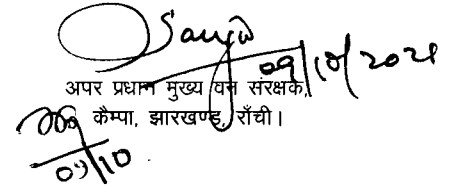 Sanjio 09/10/2021
अपर प्रधान मुख्य वन संरक्षक,
कैम्पा, झारखण्ड, राँची।
09/10